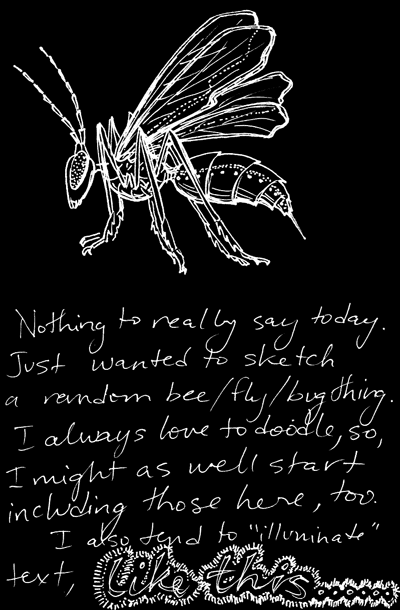 Nothing to really say today.
Just wanted to sketch
a random bee/fly/bugthing.
I always love to doodle, so,
I might as well start
including those here, too.
I also tend to "illuminate"
text, like this......